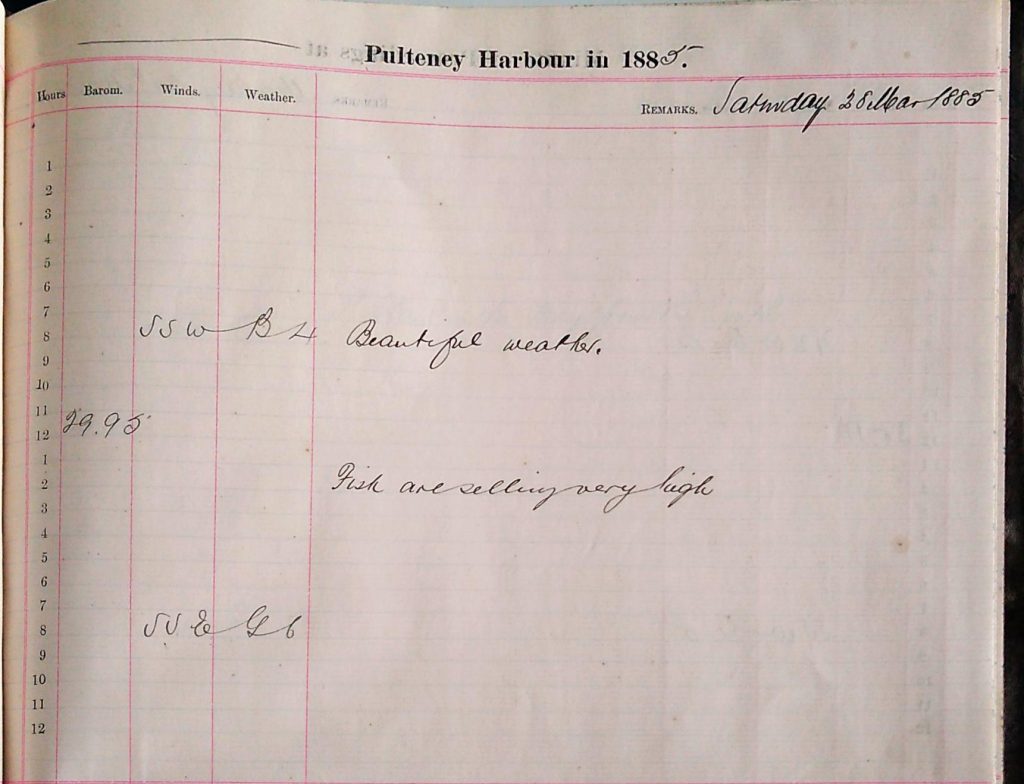 Pulteney Harbour in 1885.
Hours Barom. Winds. Weather. REMARKS. Saturday 28 Mar 1885
1
2
3
4
5
6
7
8 SSW B 4 Beautiful weather.
9
10
11
12 29.95
1
2 Fish are selling very high
3
4
5
6
7
8 SSE G 6
9
10
11
12